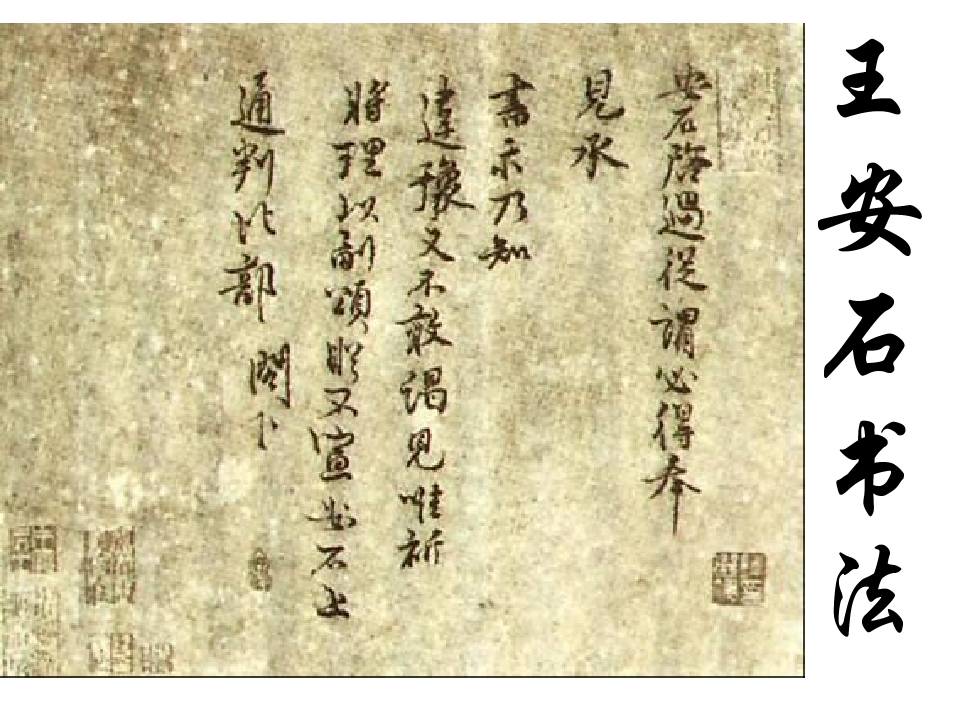 王安石书法
安石啓過從謂必得奉
見承
書示乃知
違豫又不敢謁見唯祈
將理以副頌又宣安石上
通判比部 閣下